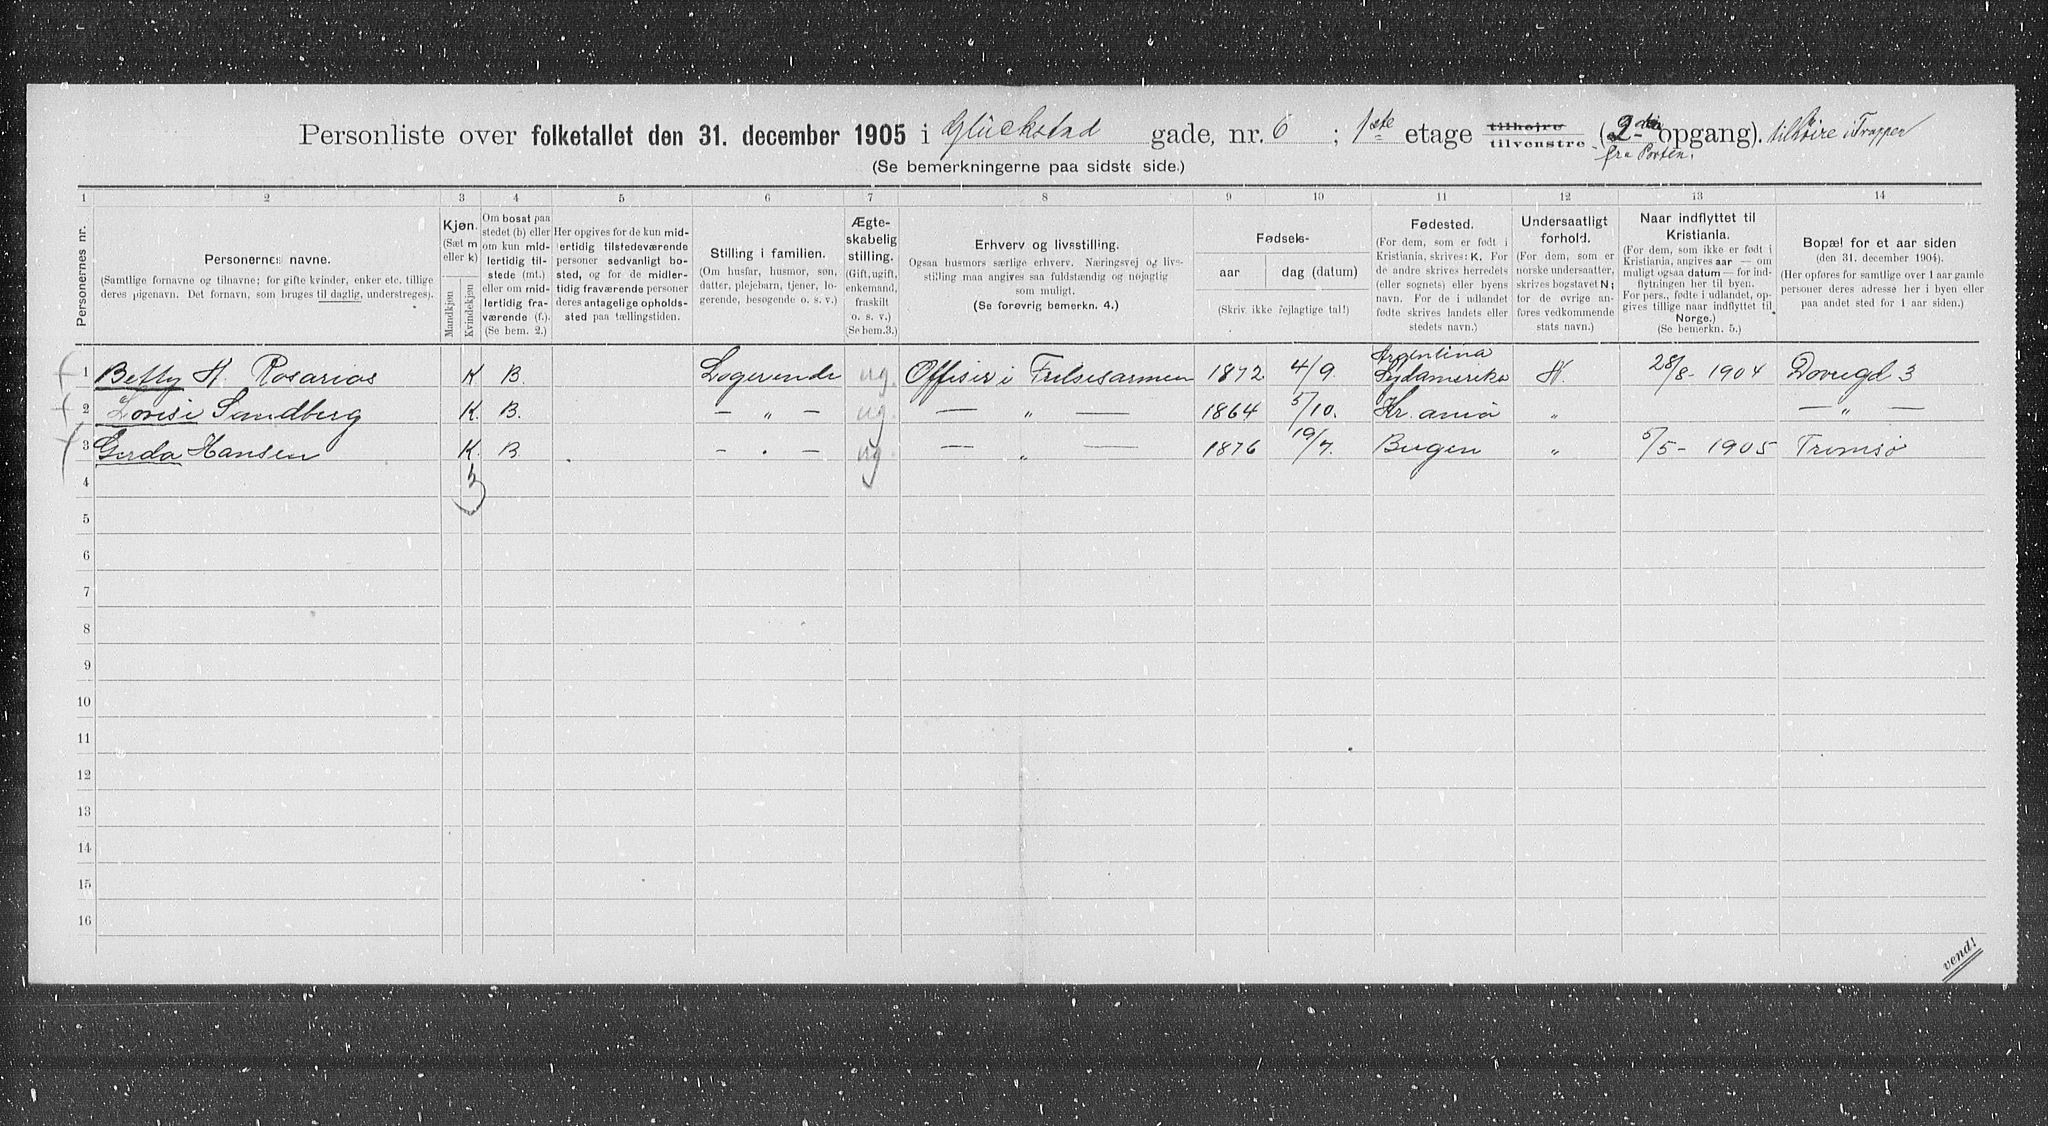 Personliste over folketallet den 31. december 1905 i Glückstad gade, nr. 6 ; 1ste etage tilhøire tilvenstre (2den opgang). tilhöire i Trappen
fra Porten.
(Se bemerkningerne paa sidste side.)
1 2 3 4 5 6 7 8 9 10 11 12 13 14
Personernes nr.
Personernes navne.
(Samtlige fornavne og tilnavne; for gifte kvinder, enker etc. tillige
deres pigenavn. Det fornavn, som bruges til daglig, understreges).
Kjøn.
(Sæt m
eller k)
Mandkjøn
Kvindekjøn
Om bosat paa
stedet (b) eller
om kun mid-
lertidig til-
stede (mt.)
eller om mid-
lertidig fra-
værende (f.).
(Se bem. 2.)
Her opgives for de kun mid-
lertidig tilstedeværende
personer sedvanlig bo-
sted, og for de midler-
tidig fraværende personer
deres antagelige opholds-
sted paa tællingstiden.
Stilling i familien.
(Om husfar, husmor, søn,
datter, plejebarn, tjener, lo-
gerende, besøgende o. s. v.)
Ægte-
skabelig
stilling.
(Gift, ugift,
enkemand,
fraskilt
o. s. v.)
(Se bem.3.)
Erhverv og livsstilling.
Ogsaa husmors særlige erhverv. Næringsvej og livs-
stilling maa angives saa fuldstændig og nøjagtig
som muligt.
(Se forøvrig bemerkn. 4.)
Fødsels-
aar dag (datum)
(Skriv ikke fejlagtige tal!)
Fødested.
(For dem, som er født i
Kristiania, skrives: K. For
de andre skrives herredets
(eller sognets) eller byens
navn. For de i udlandet
fødte skrives landets eller
stedets navn.)
Undersaatligt
forhold.
(For dem, som er
norske undersaatter,
skrives bogstavet N;
for de øvrige an-
føres vedkommende
stats navn.)
Naar indflyttet til
Kristiania.
(For dem, som ikke er født i
Kristiania, angives aar — om
muligt ogsaa datum — for ind-
flytningen her til byen.
For pers., fødte i udlandet, op-
gives tillige naar indflyttet til
Norge.)
(Se bemerkn. 5.)
Bopæl for et aar siden
(den 31. december 1904).
(Her opføres for samtlige over 1 aar gamle
personer deres adresse her i byen eller
paa andet sted for 1 aar siden.)
1 Betty H. Rosarios K B. Logerende ug. Offiser i Frelsesarmeen 1872 4/9. Argentina Sydamerika N. 28/8 - 1904 Dovregd 3
2 Lovise Sundberg K. B. — „ — ug. — „ — 1864 5/10. Kr.ania „ — „ —
3 Gerda Hansen K. B. — „ — ug — „ — 1876 19/7. Bergen „ 5/5 - 1905 Tromsö
3
4
5
6
7
8
9
10
11
12
13
14
15
16
vend!